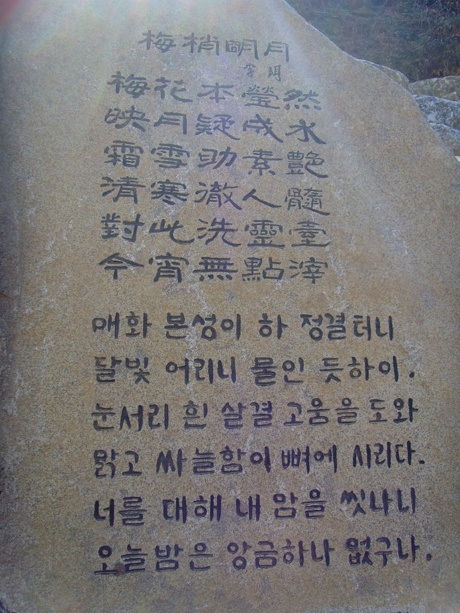 梅梢明月
梅花本瑩然
映月疑成水
霜雪助素艶
清寒徹人髓
對此洗靈臺
今宵無點滓
매화 본성이 하 정결터니
달빛 어리니 물인 듯하이.
눈서리 흰 살결 고움을 도와
맑고 싸늘함이 뼈에 시리다.
너를 대해 내 맘을 씻나니
오늘밤은 앙금하나 없구나.